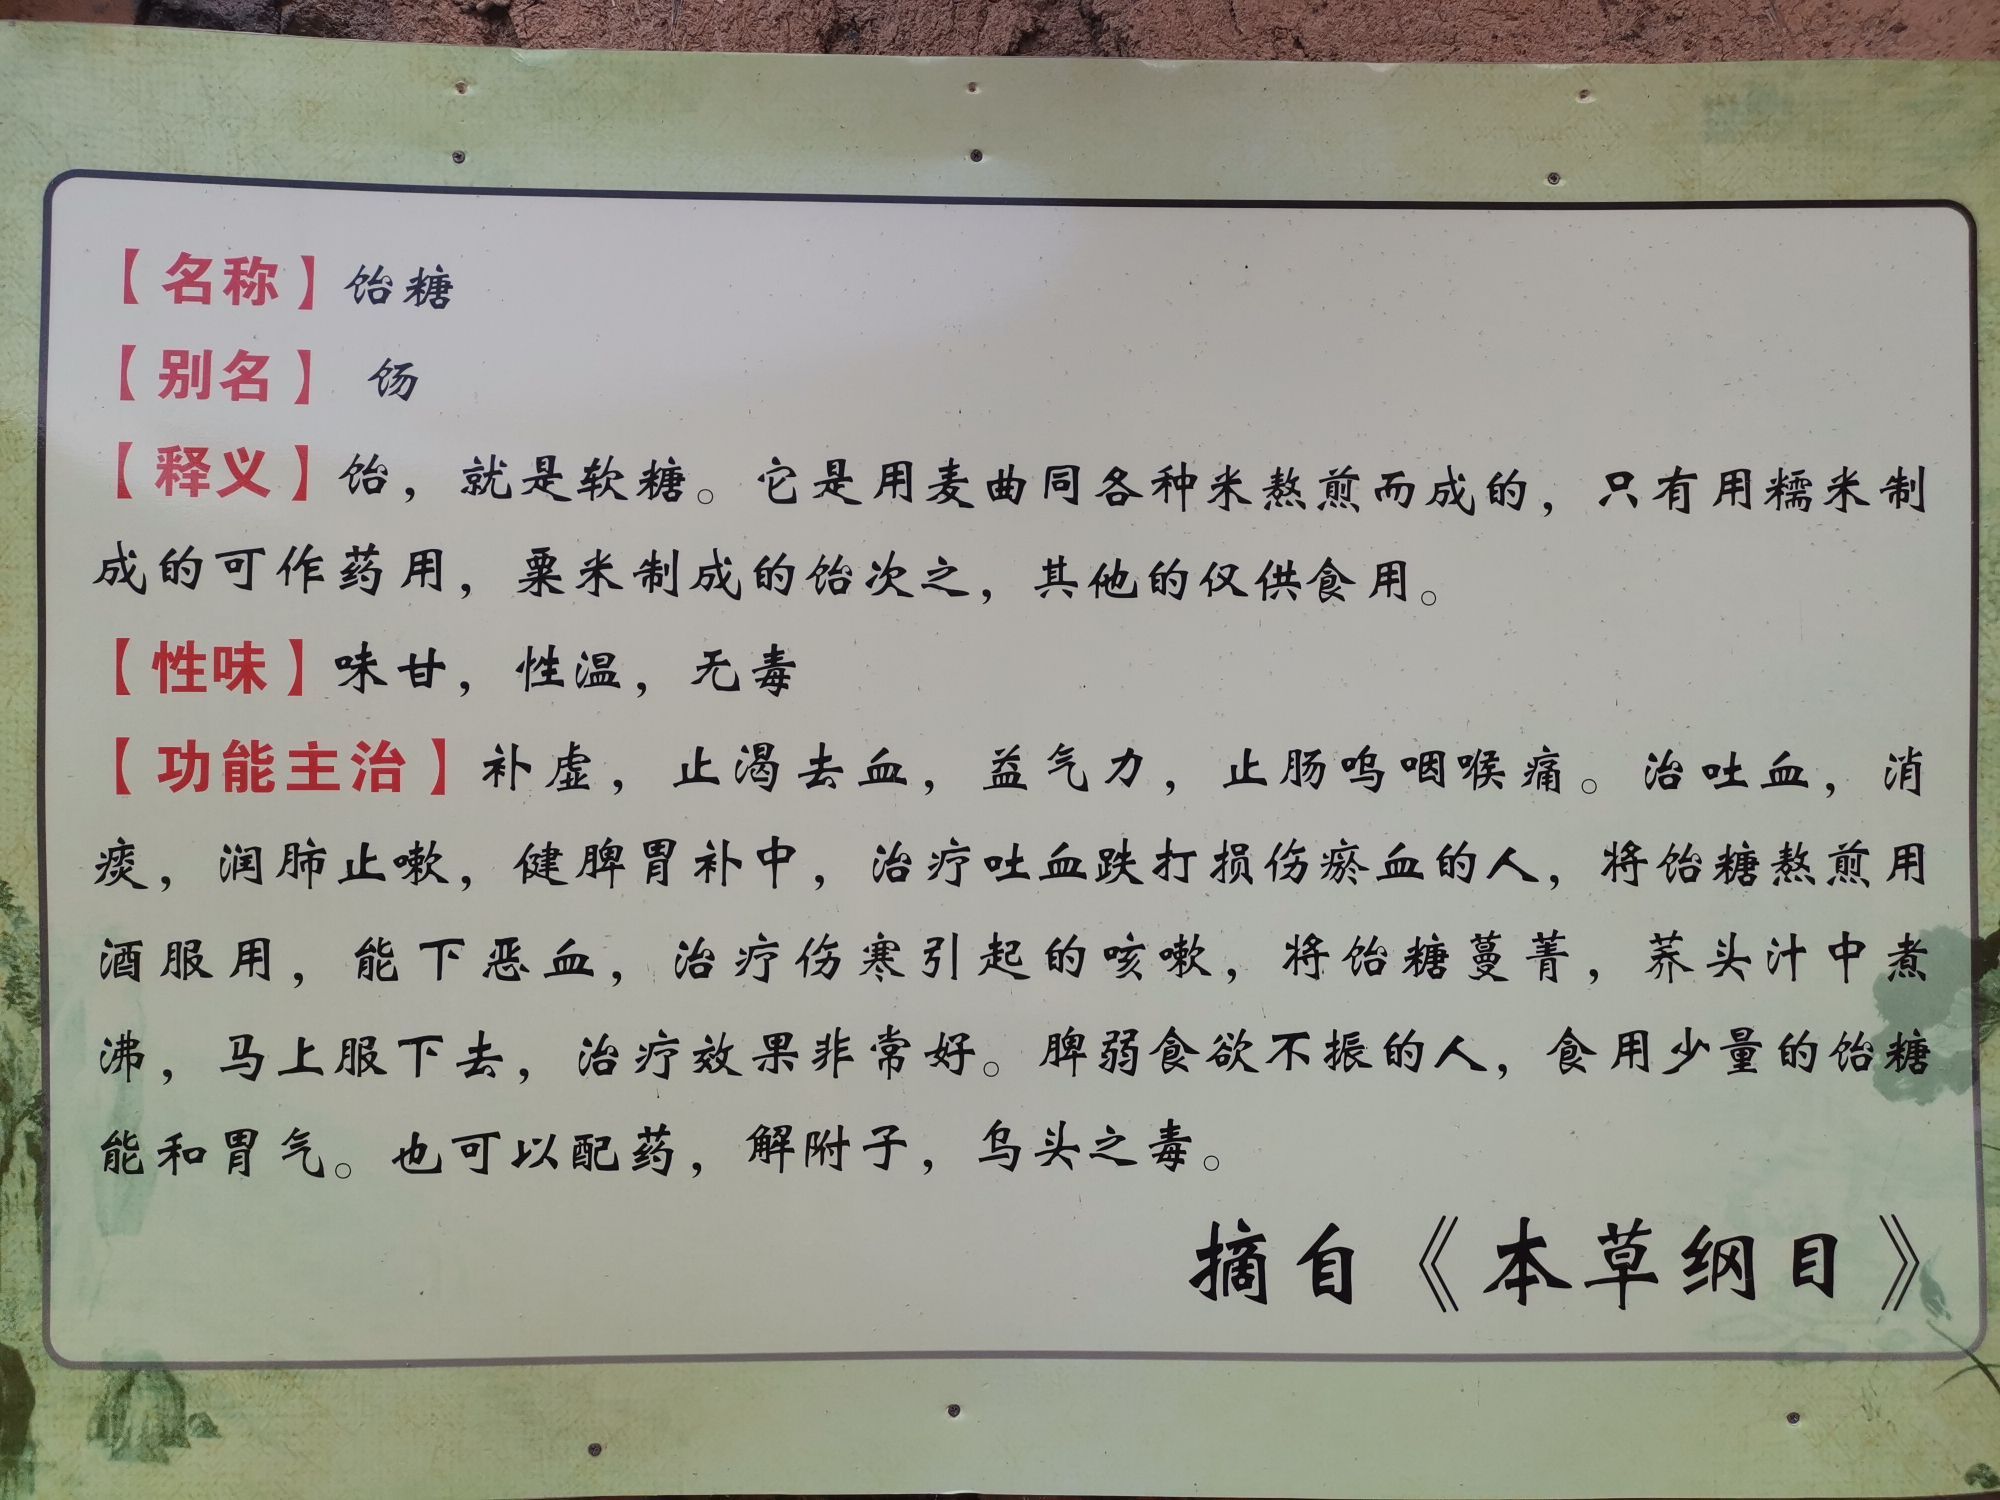 【名称】饴糖
【别名】 饧
【释义】饴，就是软糖。它是用麦曲同各种米熬煎而成的，只有用糯米制
成的可作药用，粟米制成的饴次之，其他的仅供食用。
【性味】味甘，性温，无毒
【功能主治】补虚，止渴去血，益气力，止肠鸣咽喉痛。治吐血，消
痰，润肺止嗽，健脾胃补中，治疗吐血跌打损伤瘀血的人，将饴糖熬煎用
酒服用，能下恶血，治疗伤寒引起的咳嗽，将饴糖蔓菁，荞头汁中煮
沸，马上服下去，治疗效果非常好。脾弱食欲不振的人，食用少量的饴糖
能和胃气。也可以配药，解附子，乌头之毒。
摘自《本草纲目》